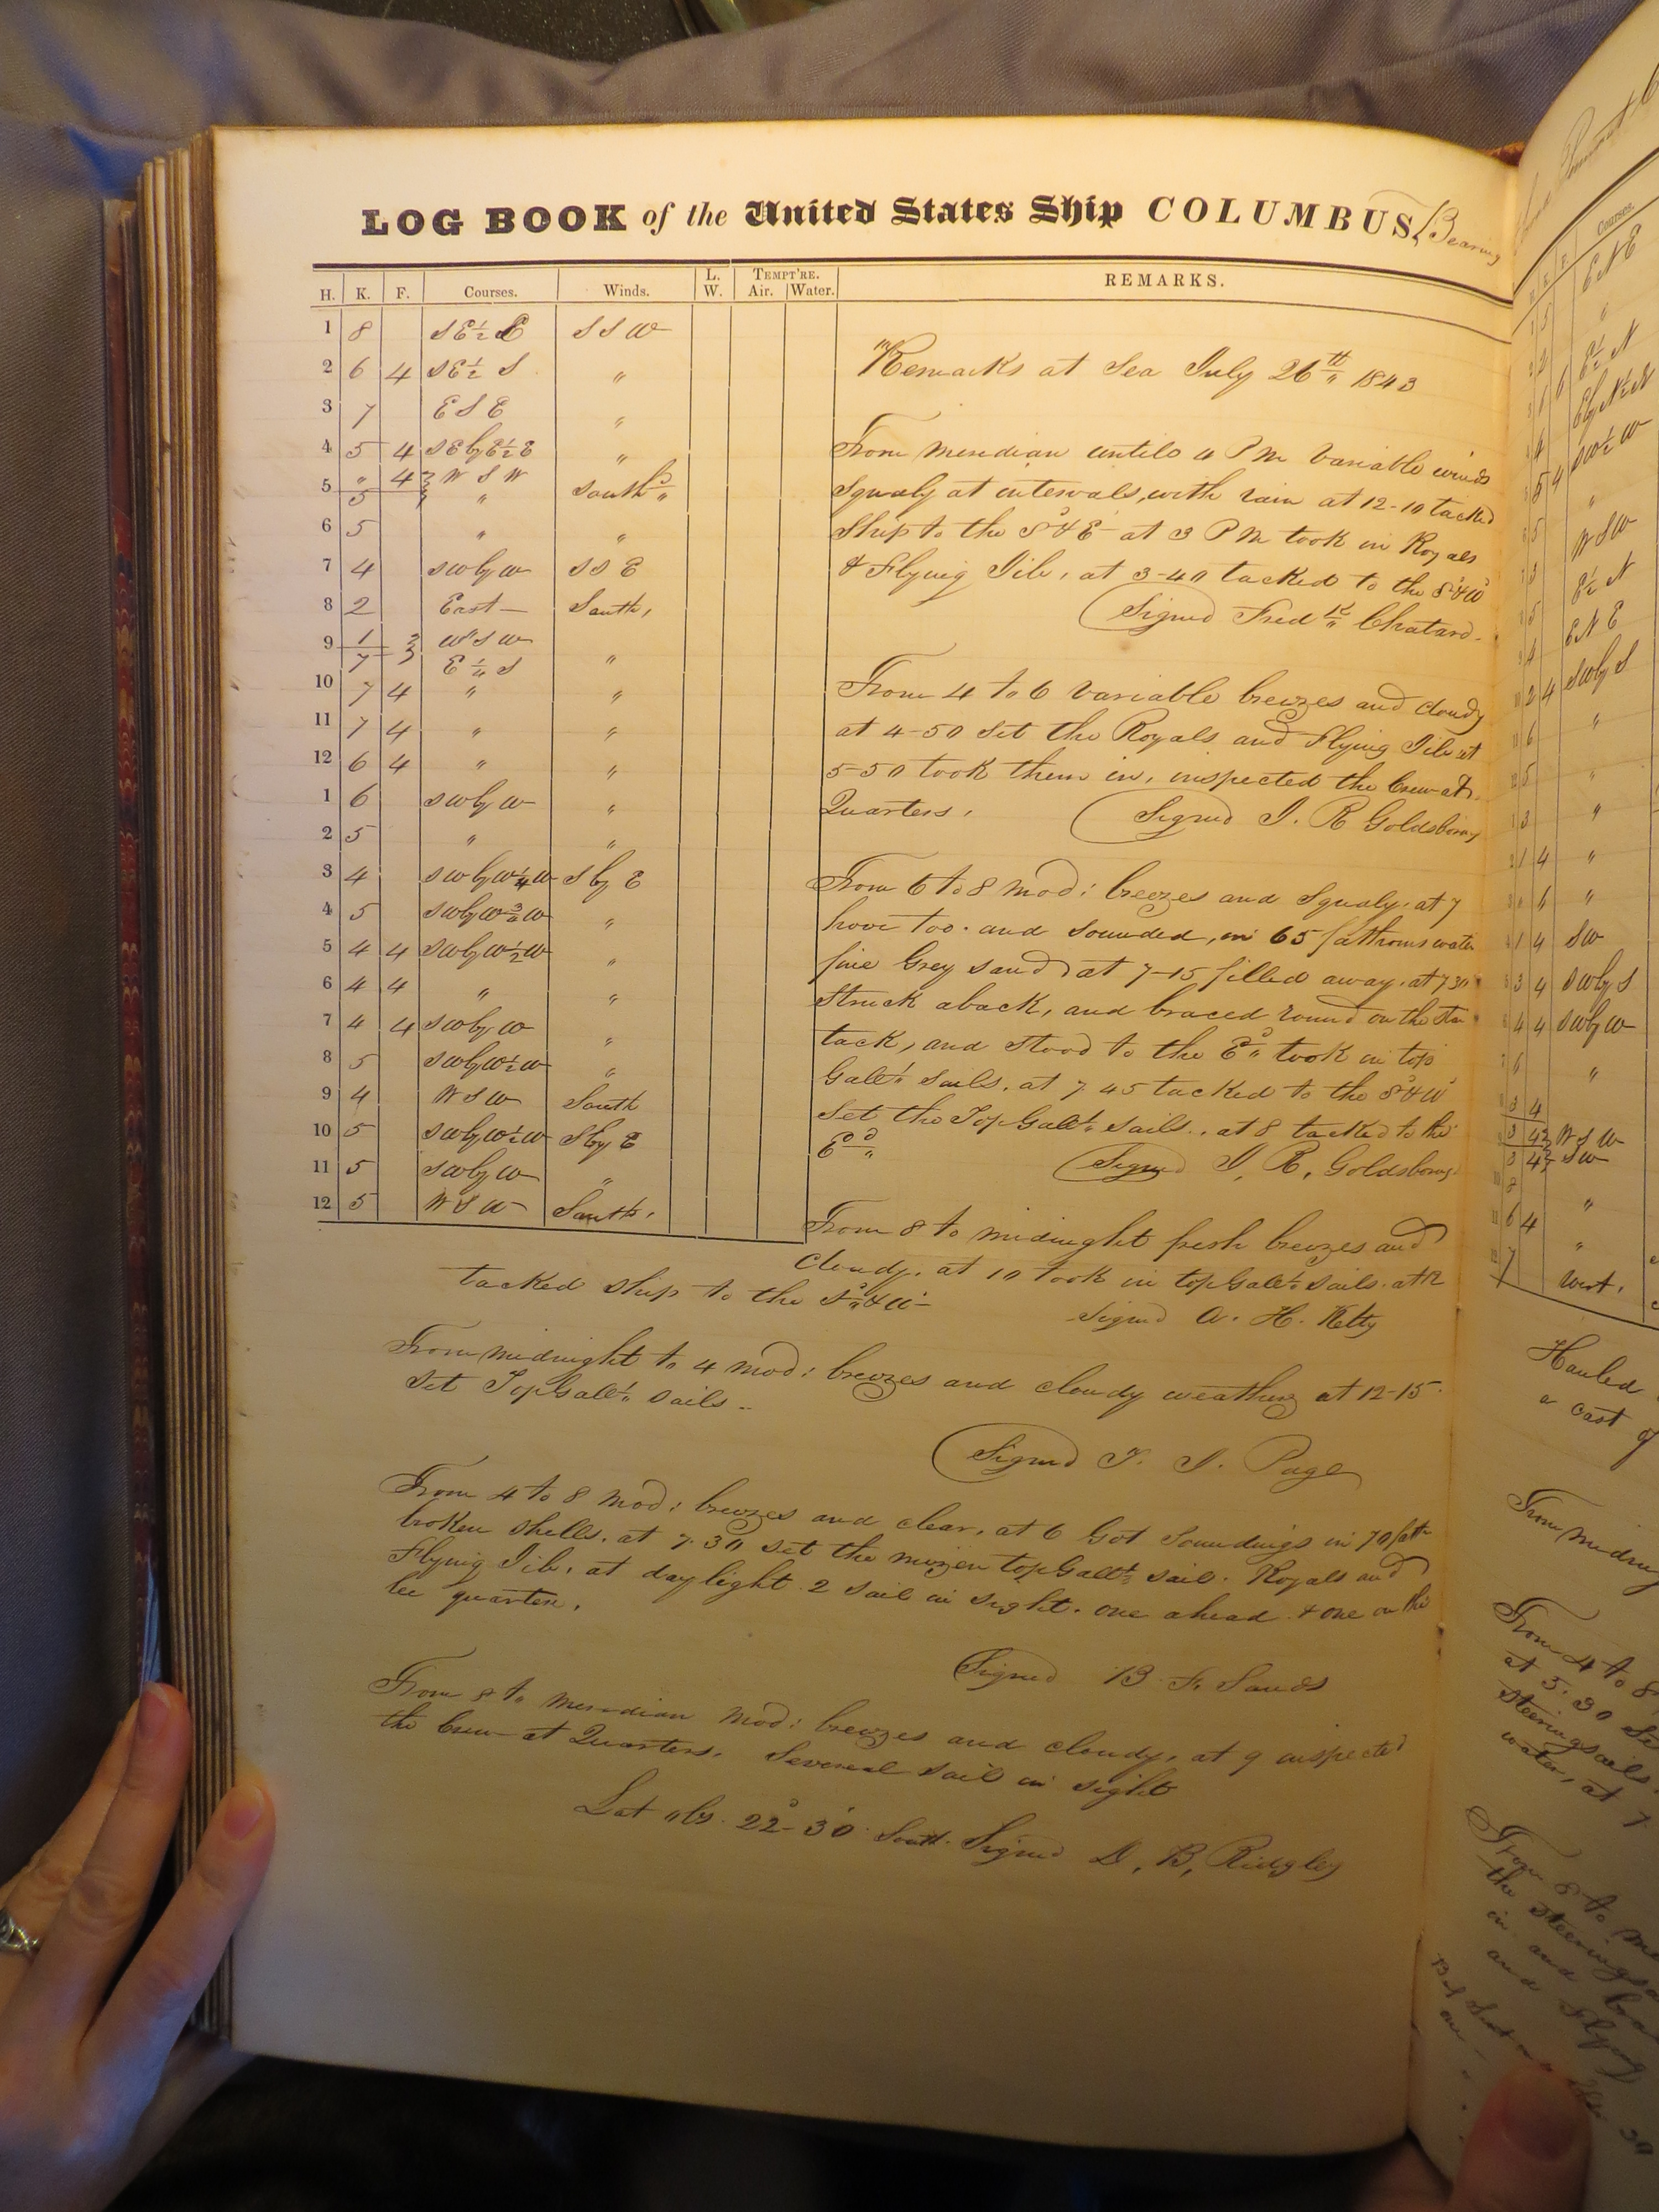 LOG BOOK of the United States Ship COLUMBUS, Bearing
H. K. F. Courses. Winds. L. W. TEMPT'RE. Air. Water. REMARKS.
1 8 SE½E SSW
2 6 4 SE½S "
3 7 ESE "
4 5 4 SEbyE½E "
" 4 WSW
5 5 " South d "
6 5 " "
7 4 SWbyW SSE
8 2 East South,
9 1 WSW
7 E ½ S "
10 7 4 " "
11 7 4 " "
12 6 4 " "
1 6 SWbyW "
2 5 " "
3 4 SWbyW¼W SbyE
4 5 SWbyW¾W "
5 4 4 SWbyW½W "
6 4 4 " "
7 4 4 SWbyW "
8 5 SWbyW½W "
9 4 WSW South
10 5 SWbyW½W SbyE
11 5 SWbyW "
12 5 WSW South.
"Remarks at Sea July 26th 1843
From meridian untill 4 PM Variable winds
Squaly at intervals, with rain at 12-10 tacked
Ship to the Sd & E at 3 PM took in Royals
& Flying Jib, at 3-40 tacked to the Sd & Wd
Signed Fredk Chatard.
From 4 to 6 variable breezes and cloudy
at 4-50 Set the Royals and Flying Jib at
5-50 took them in, inspected the Crew at
Quarters. Signed J. R Goldsborog
From 6 to 8 mod: breezes and Squaly. at 7
hove too. and sounded, in 65 fathoms water
fine Grey sand at 7-15 filled away. at 7 30
Struck aback, and braced round on the Sta
tack, and stood to the Ed " took in top
Galet sails. at 7 45 tacked to the Sd & Wd
Set the TopGalet sails., at 8 tacked to the
Ed " Signed J. R. Goldsborog
From 8 to midnight fresh breezes and
Cloudy. at 10 took in topGalet sails. at 12
tacked ship to the Sd & W
Signed A. H. Kelty
From midnight to 4 mod: breezes and cloudy weather at 12-15
Set TopGalet sails..
Signed T. J. Page
From 4 to 8 mod: breezes and clear. at 6 Got Soundings in 70 fath
broken shells. at 7.30 set the mizen topGalet sail. Royals and
Flying Jib. at daylight 2 sail in sight. one ahead & one on the
lee quarter.
Signed B. F. Sands
From 8 to meridian mod: breezes and cloudy, at 9 inspected
the Crew at Quarters. Several sail in sight
Lat obs. 22°-30' South. Signed D. B. Ridgley
Courses.
ENE
"
E½N
SW½W
"
WSW
E½N
ENE
SWbyS
"
"
"
"
"
SW
SWbyS
SWbyW
"
WSW
SW
"
"
West.
Hauled
a cast of
From midnig
From 4 to 8
at 5.30 Se
Steeringsails
water, at 7
From 8 to me
the Steeringsa
in and
and Flying